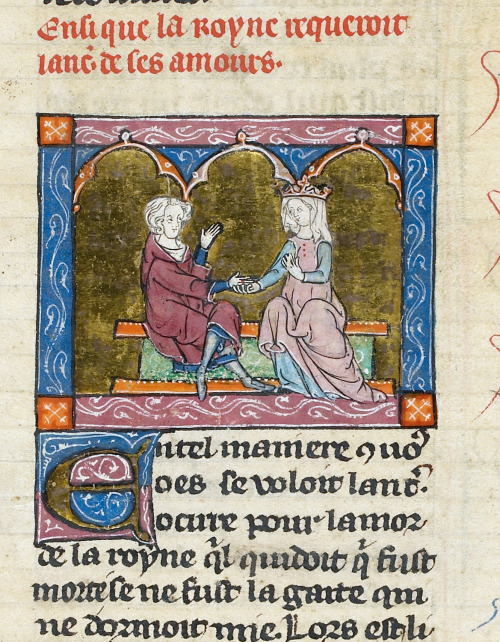 Ensi que la royne requeroit
lanc̃. de ses amours.
Entel maniere ꝯ uoꝰ
oes se voloit lanc̃.
ocirre pour lamor
de la royne q̃l quidoit q̃ fust
morte se ne fust la gaite qui
ne dormoit mie. Lors est li